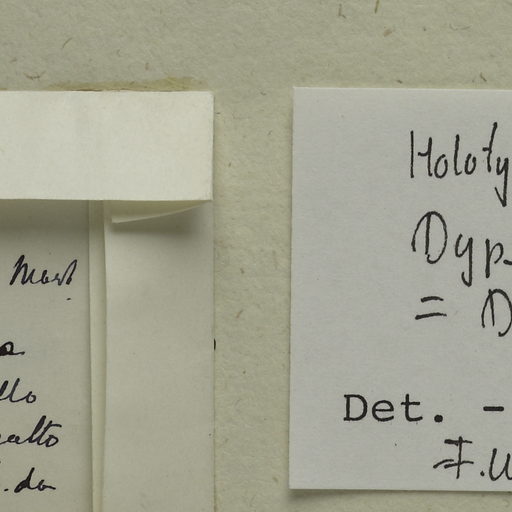 Mart.
llo
alto
. da
Holoty
Dyp
= D
Det. -
F. W